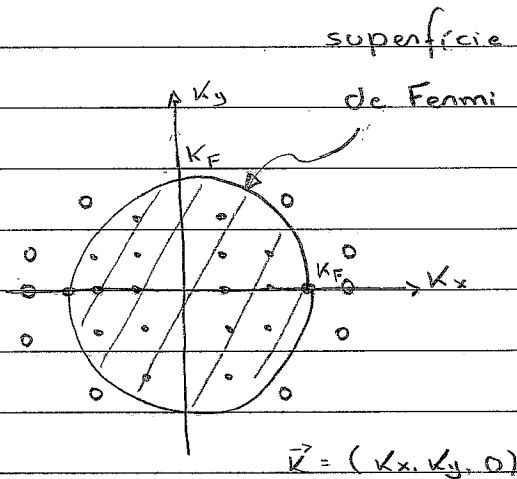 superfície
de Fermi
Ky
KF
KF
Kx
K⃗ = (Kx, Ky, 0)